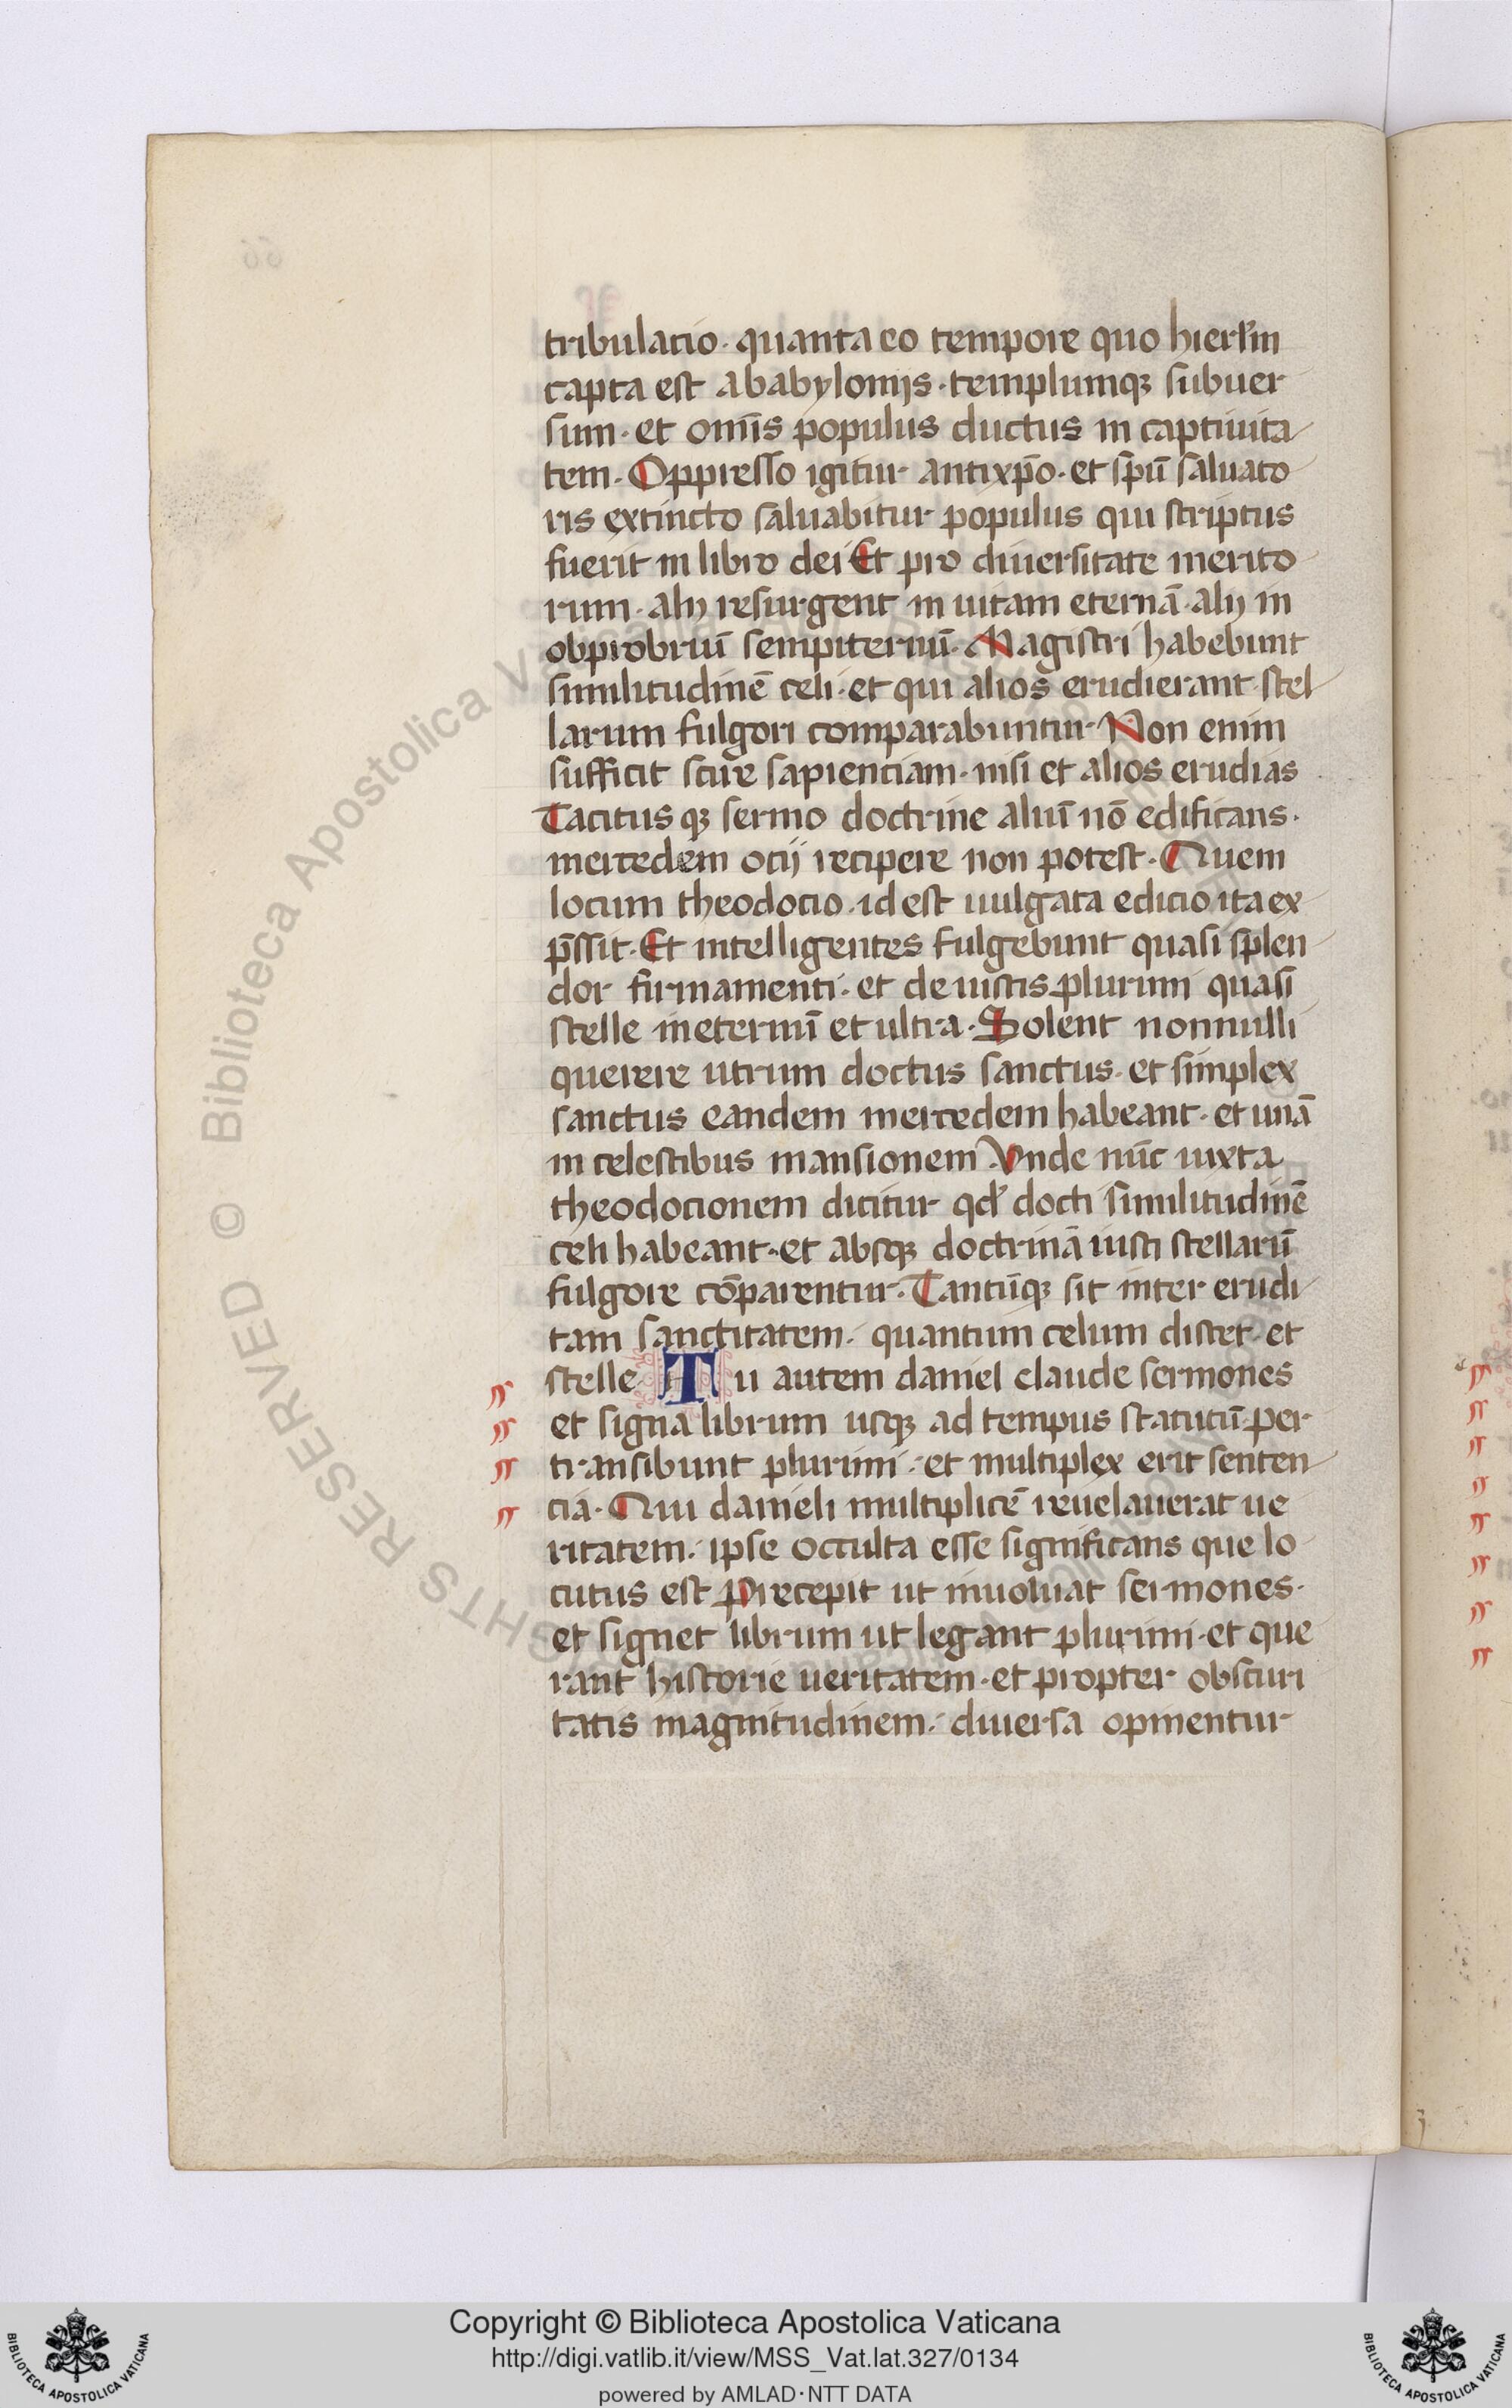 tribulatio · quanta eo tempore quo hierl̄m
capta est ababylonijs · templumqꝫ subuer
sum · et om̄is populus ductus in captiuita
tem · Oppresso igitur antixp̄o · et sp̄u saluato
ris extincto saluabitur populus qui scriptus
fuerit in libro dei Et pro diuersitate merito
rum · alij resurgent in uitam eternā · alij in
obprobriū sempiternū · Magistri habebunt
similitudinē celi · et qui alios erudierant · stel
larum fulgori comparabuntur · Non enim
sufficit scire sapienciam · nisi et alios erudias
Tacitus qꝫ sermo doctrine aliū nō edificans ·
mercedem ocij recipere non potest · Quem
locum theodocio · id est uulgata edicio ita ex
p̄ssit · Et intelligentes fulgebunt quasi splen
dor firmamenti · et de iustis plurimi quasi
stelle in eternū et ultra · Solent nonnulli
querere utrum doctus sanctus · et simplex
sanctus eandem mercedem habeant · et unā
in celestibus mansionem Vnde nūc iuxta
theodocionem dicitur qd' docti similitudinē
celi habeant · et absqꝫ doctrinā iusti stellarū
fulgore cōparentur · Tantūqꝫ sit inter erudi
tam sanctitatem · quantum celum distet · et
stelle · Tu autem daniel claude sermones
et signa librum usqꝫ ad tempus statutū · per
transibunt plurimi · et multiplex erit senten
cia · Qui danieli multiplicē reuelauerat ue
ritatem · ipse occulta esse significans que lo
cutus est Precepit ut inuoluat sermones ·
et signet librum ut legant plurimi · et que
rant historie ueritatem · et propter obscuri
tatis magnitudinem · diuersa opinentur
© Biblioteca Apostolica Vaticana
Copyright © Biblioteca Apostolica Vaticana
http://digi.vatlib.it/view/MSS_Vat.lat.327/0134
powered by AMLAD·NTT DATA
BIBLIOTECA APOSTOLICA VATICANA
BIBLIOTECA APOSTOLICA VATICANA